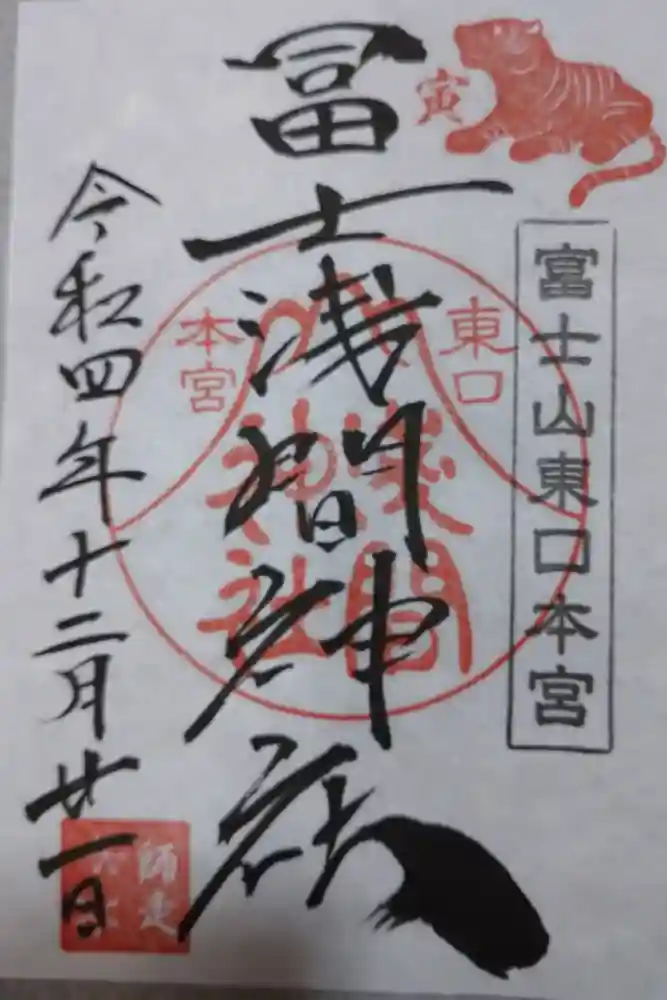 寅
富士山東口本宮
冨士浅間神社
東口
本宮
浅間
神社
令和四年十二月廿一日
師走